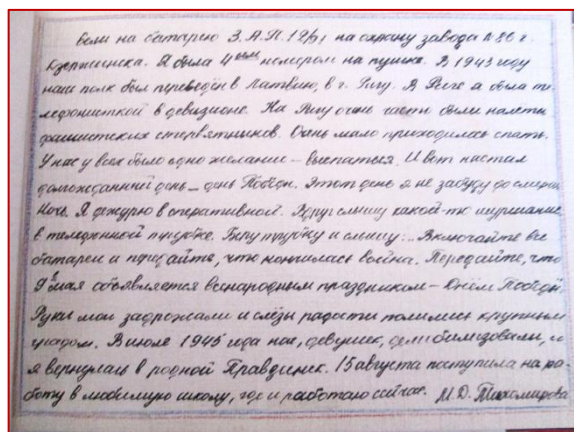 вели на батарею З.А.П. 1291 на охрану завода №80 г.
Дзержинска. Я была 4ым номером на пушке. В 1943 году
наш полк был переведён в Латвию, в г. Ригу. В Риге я была те-
лефонисткой в дивизионе. На Ригу очень часто были налеты
фашистских стервятников. Очень мало приходилось спать.
У нас у всех было одно желание – выспаться. И вот настал
долгожданный день – день Победы. Этот день я не забуду до смерти.
Ночь. Я дежурю в оперативной. Вдруг слышу какой-то шуршание
в телефонной трубке. Беру трубку и слышу: .. Включайте все
батареи и передайте, что кончилась война. Передайте, что
9 мая объявляется всенародным праздником – Днём Победы.
Руки мои задрожали и слёзы радости полились крупным
градом. В июле 1945 года нас, девушек, демобилизовали, и
я вернулась в родной Правдинск. 15 августа поступила на ра-
боту в любимую школу, где и работаю сейчас. М.Д. Тихомирова